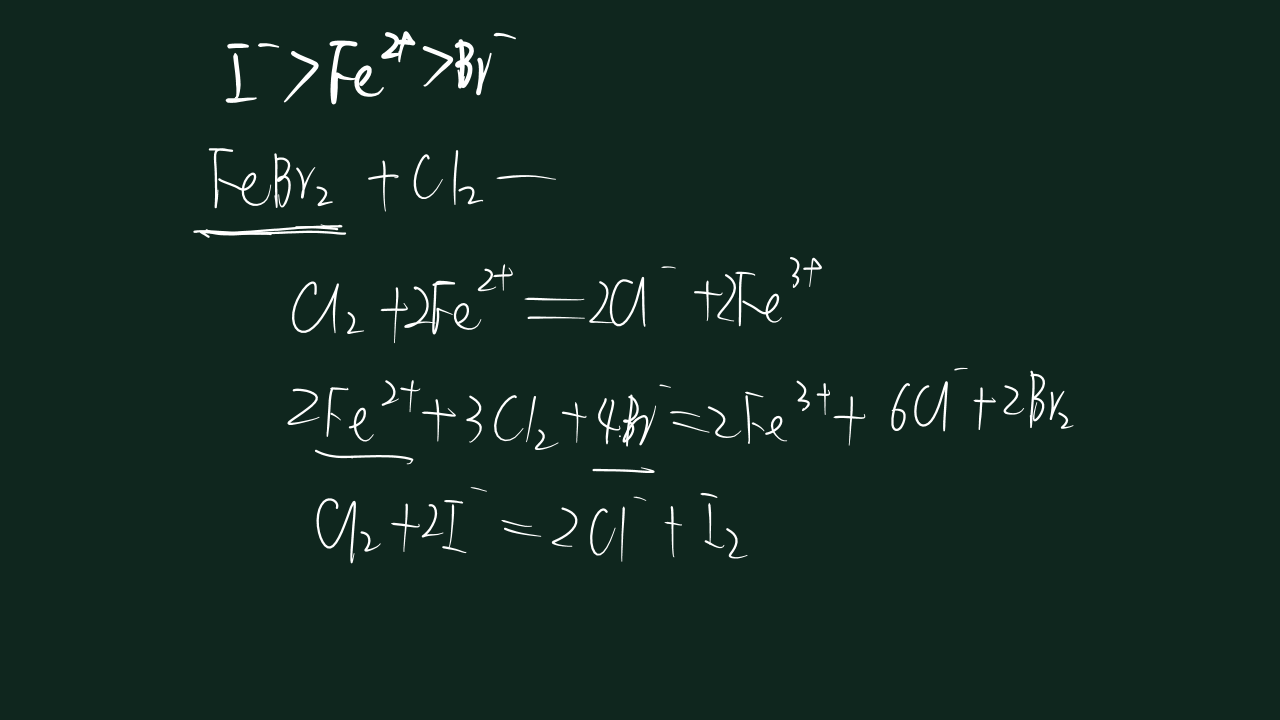 I⁻ > Fe²⁺ > Br⁻
FeBr₂ + Cl₂ —
Cl₂ + 2Fe²⁺ = 2Cl⁻ + 2Fe³⁺
2Fe²⁺ + 3Cl₂ + 4Br⁻ = 2Fe³⁺ + 6Cl⁻ + 2Br₂
Cl₂ + 2I⁻ = 2Cl⁻ + I₂